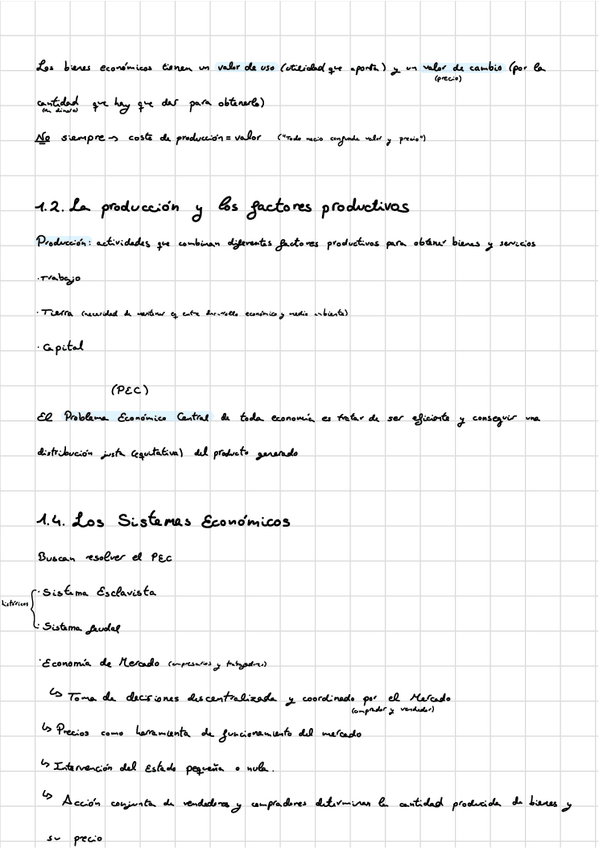 Los bienes económicos tienen un valor de uso (utilidad que aporta) y un valor de cambio (por la
(precio)
cantidad que hay que dar para obtenerlo)
(en dinero)
No siempre → coste de producción = valor ("Todo necio confunde valor y precio")
1.2. La producción y los factores productivos
Producción: actividades que combinan diferentes factores productivos para obtener bienes y servicios
· Trabajo
· Tierra (necesidad de mantener eq entre desarrollo económico y medio ambiente)
· Capital
(PEC)
El Problema Económico Central de toda economía es tratar de ser eficiente y conseguir una
distribución justa (equitativa) del producto generado
1.4. Los Sistemas Económicos
Buscan resolver el PEC
· Sistema Esclavista
históricos
· Sistema feudal
· Economía de Mercado (empresarios y trabajadores)
↳ Toma de decisiones descentralizada y coordinado por el Mercado
(comprador y vendedor)
↳ Precios como herramienta de funcionamiento del mercado
↳ Intervención del Estado pequeña o nula.
↳ Acción conjunta de vendedores y compradores determinan la cantidad producida de bienes y
su precio